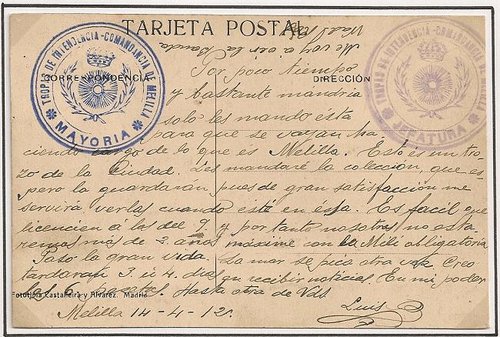 TARJETA POSTAL
CORRESPONDENCIA
DIRECCIÓN
TROPAS DE INTENDENCIA - COMANDANCIA DE MELILLA
MAYORIA
TROPAS DE INTENDENCIA - COMANDANCIA DE MELILLA
JEFATURA
Me voy a oir la banda
Por poco tiempo
y bastante mandria
solo les mando esta
para que se vayan ha
ciendo cargo de lo que es Melilla. Este es un tro
zo de la Ciudad. Les mandaré la colección, que es
pero la guardaran pues de gran satisfacción me
servirá verlas cuando esté en esa. Es facil que
licencien a los del 9 y por tanto nosotros no esta
remos más de 2 años máxime con la Mili obligatoria
Paso la gran vida. La mar se pica otra vez. Creo
tardaran 3 ú 4 dias en recibir noticias. En mi poder
las 6 pesetas. Hasta otra de Vds
Fototipia Castañeira y Alvarez. Madrid
Luis
Melilla 14-4-12